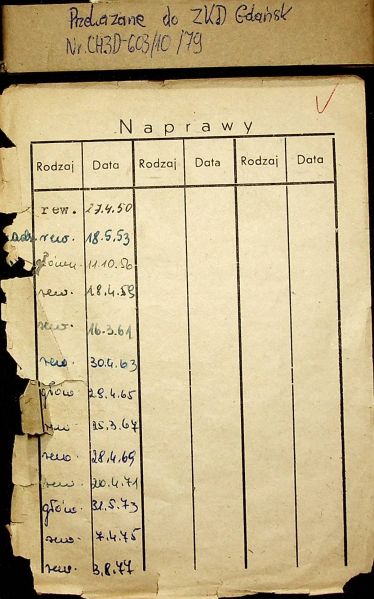 Przekazane do ZKD Gdańsk
Nr. CH3D-603/10/79
Naprawy
Rodzaj Data Rodzaj Data Rodzaj Data
rew. 27.4.50
rew. 18.5.53
główn. 11.10.56
rew. 28.4.59
rew. 16.3.61
rew. 30.4.63
głów. 29.4.65
rew. 25.3.67
rew. 28.4.69
rew. 20.4.71
głów. 31.5.73
rew. 7.4.75
rew. 3.8.77